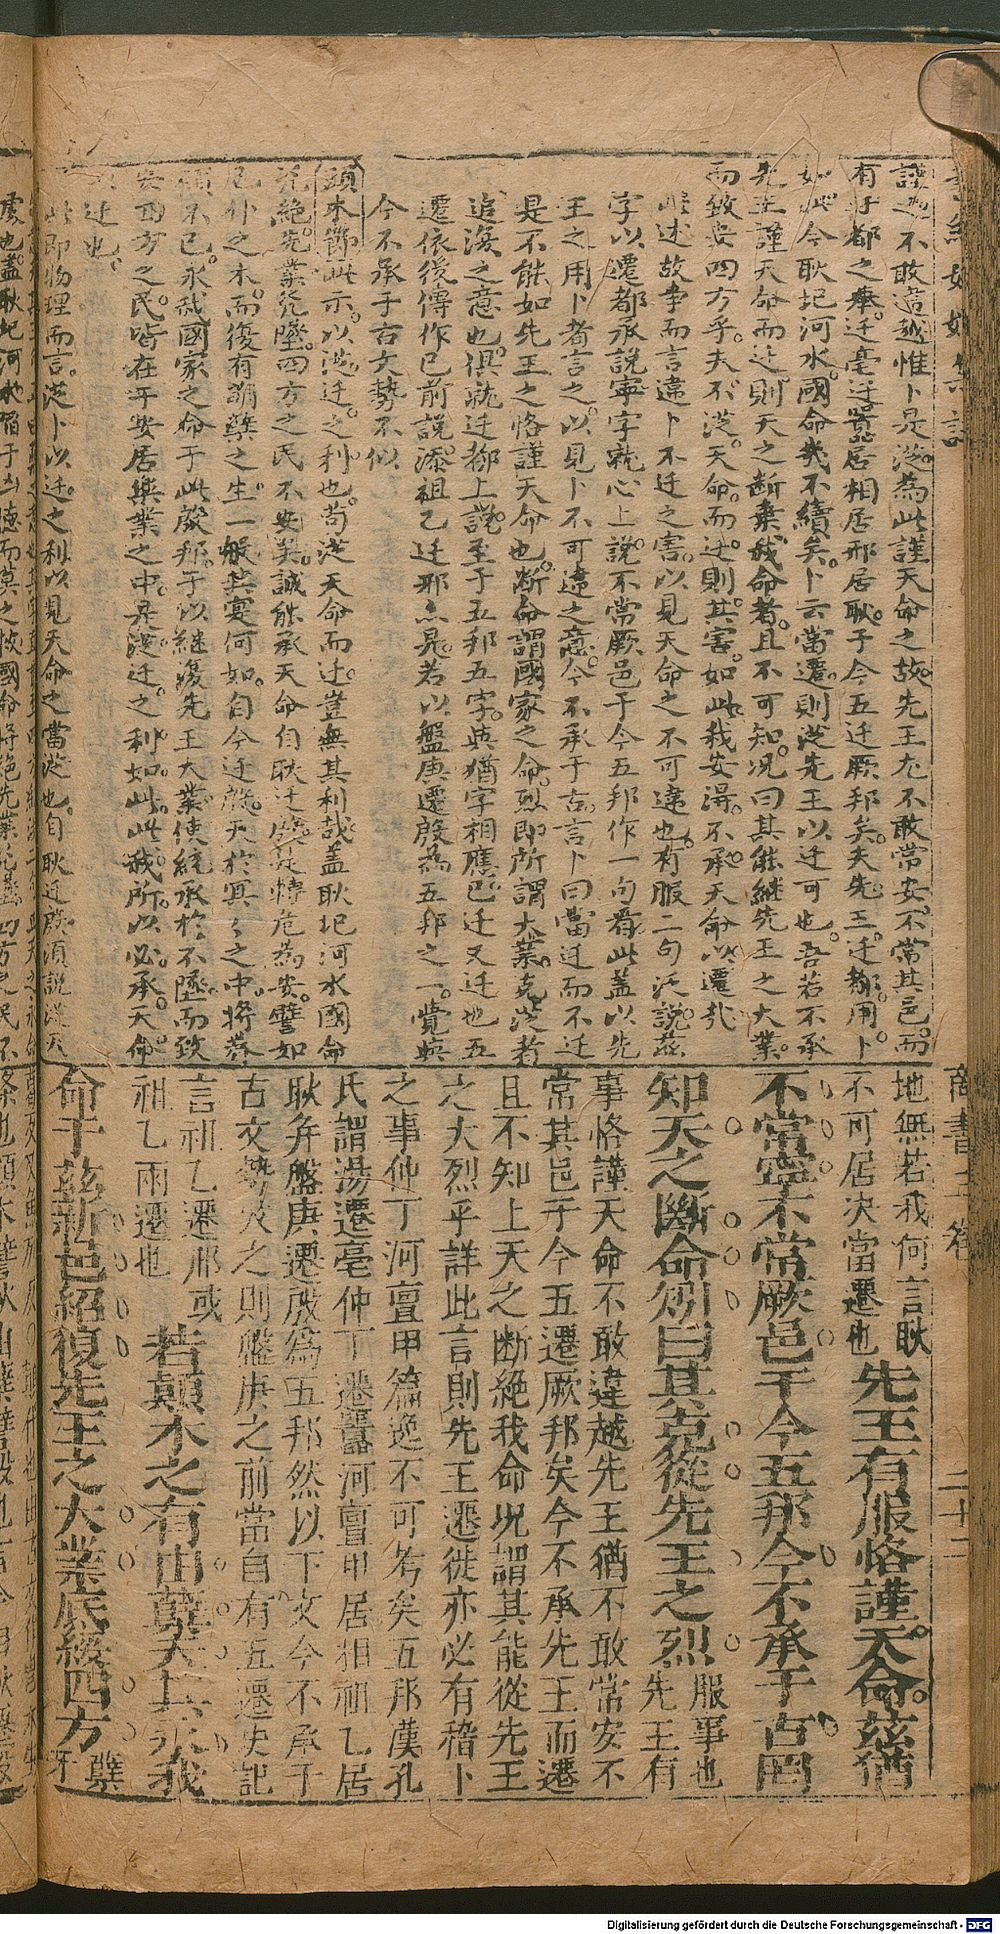 謹也不敢違越惟卜是從為此謹天命之故先王尤不敢常安不常其邑而
有于都之奉迁亳迁囂居相居邢居耿于今五迁厥邦矣夫先王迁都用卜
如此今耿圮河水國命幾不續矣卜云當遷則從先王以迁可也吾若不承
先王謹天命而迁則天之斷棄我命者且不可知况曰其能継先王之大業
而致安四方乎夫不從天命而迁則其害如此我安得不承天命以遷哉
述故事而言違卜不迁之害以見天命之不可違也有服二句泛說茲
字以遷都承說寧字就心上說不常厥邑于今五邦作一句看此蓋以先
王之用卜者言之以見卜不可違之意今不承于古言卜曰當迁而不迁
是不能如先王之恪謹天命也断命謂國家之命烈即所謂大業克從者
追復之意也俱就迁都上說至于五邦五字與猶字相應已迁又迁也五
遷依後傳作已前說添祖乙迁邢亦是若以盤庚遷殷為五邦之一覚與
今不承于古文勢不似
顛木節此示以從迁之利也苟從天命而迁豈無其利哉盖耿圮河水國命
先業殆墜四方之民不安矣誠能承天命自耿迁殷是轉危為安譬如
已仆之木而復有萠蘖之生一般其寔何如自今迁殷天於冥々之中將
不已永我國家之命于此殷邦于以継復先王大業使統承於不墜而致
安四方之民皆在乎安居樂業之中是從迁之利如此此我所以必承天命
迁也
此即物理而言從卜以迁之利以見天命之當從也自耿迁殷須說從天
商書 卷 二十二
地無若我何言耿
不可居决當遷也
先王有服恪謹天命茲猶
不常寧不常厥邑于今五邦今不承于古罔
知天之斷命矧曰其克從先王之烈
服事也
先王有
事恪謹天命不敢違越先王猶不敢常安不
常其邑于今五遷厥邦矣今不承先王而遷
且不知上天之断絕我命况謂其能從先王
之大烈乎詳此言則先王遷徙亦必有稽卜
之事仲丁河亶甲篇逸不可考矣五邦漢孔
氏謂湯遷亳仲丁遷囂河亶甲居相祖乙居
耿并盤庚遷殷為五邦然以下文今不承于
古文勢攷之則盤庚之前當自有五遷史記
言祖乙遷邢或
祖乙兩遷也
若顛木之有由蘖天其永我
命于茲新邑紹復先王之大業底綏四方
蘖
牙
Digitalisierung gefördert durch die Deutsche Forschungsgemeinschaft - DFG